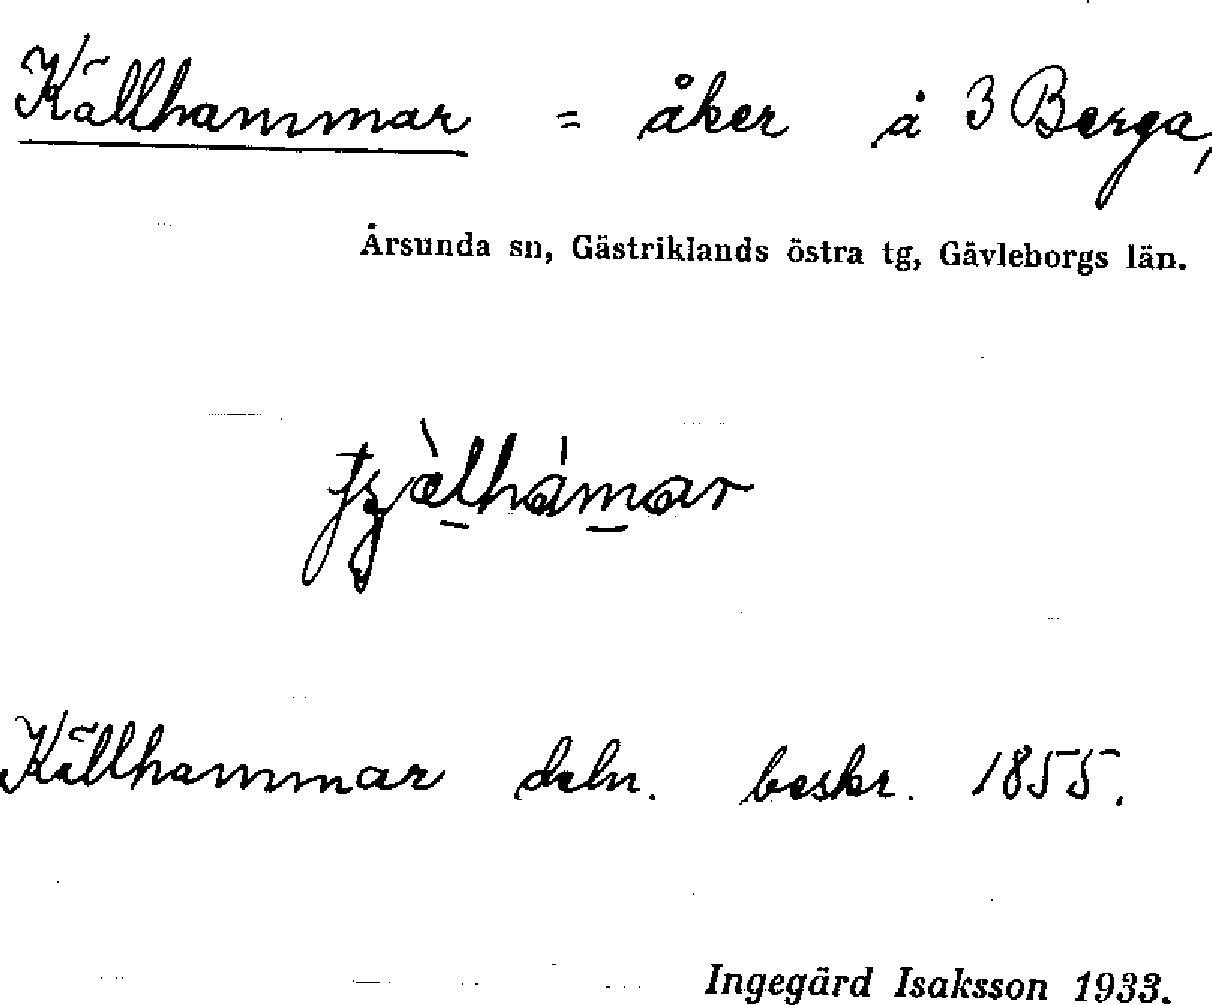 Källhammar = åker å 3 Berga,
Årsunda sn, Gästriklands östra tg, Gävleborgs län.
Källhammar deln. beskr. 1855.
Ingegärd Isaksson 1933.